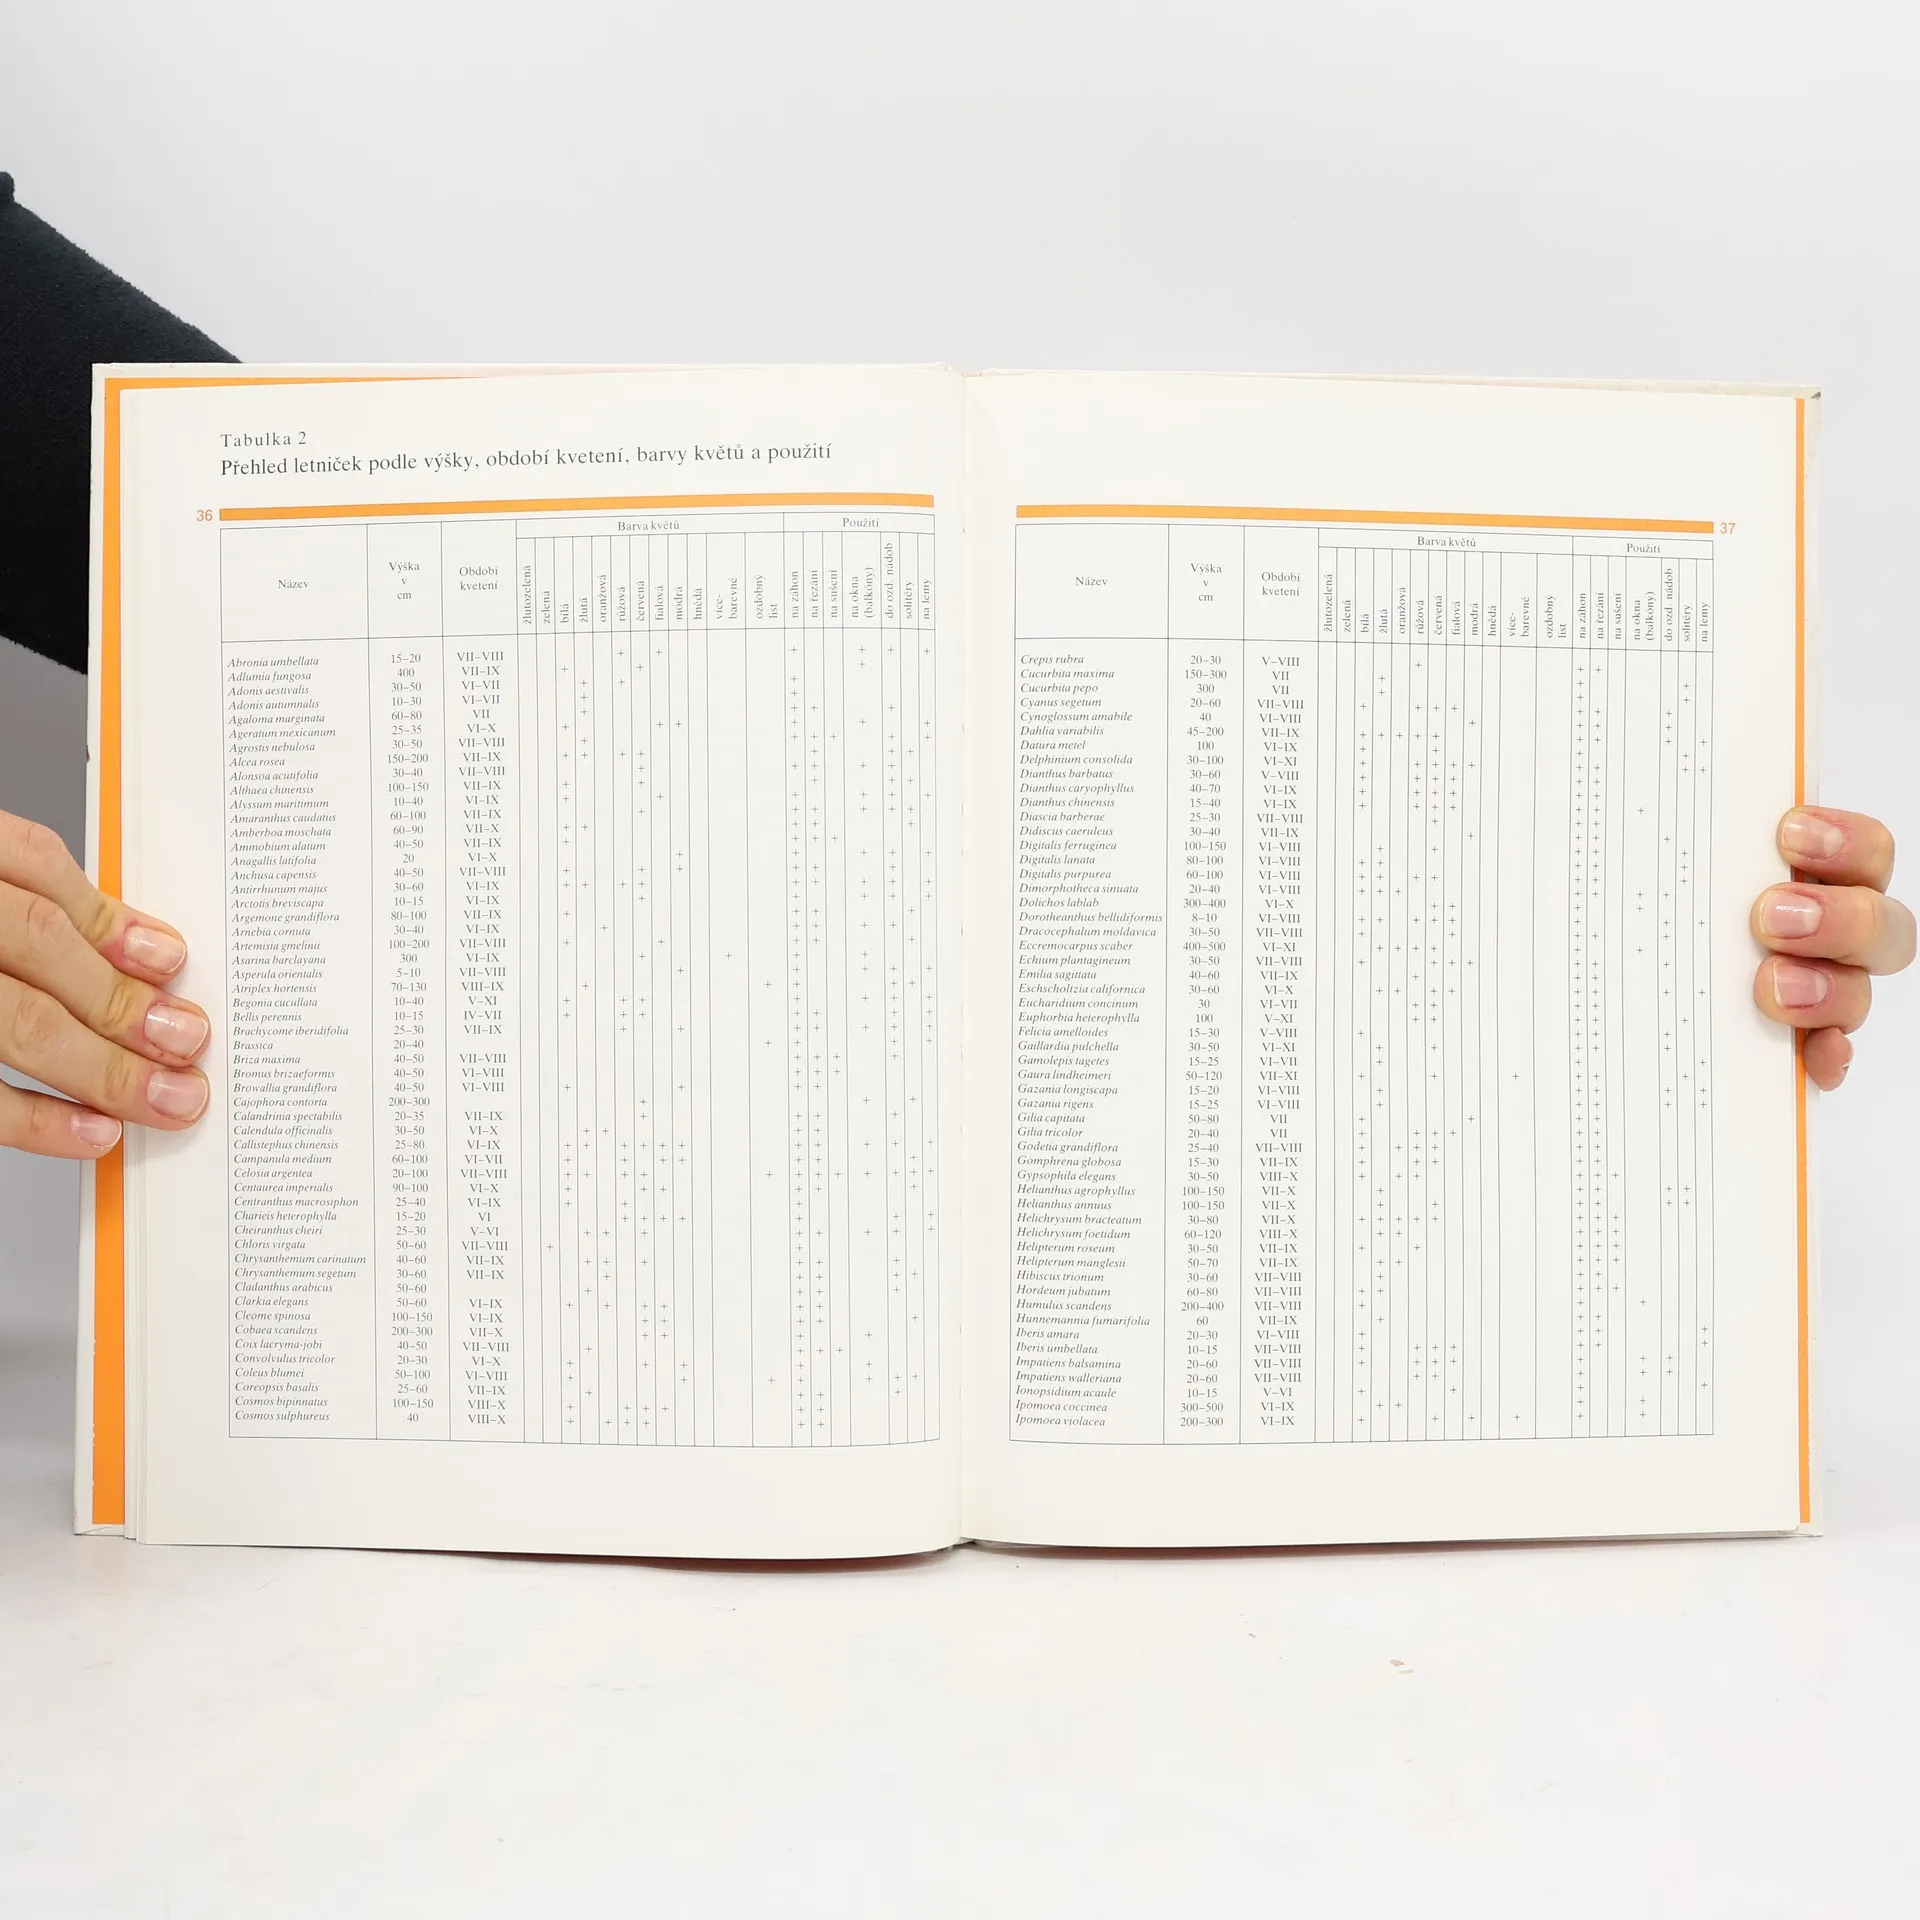 Tabulka 2
Přehled letniček podle výšky, období kvetení, barvy květů a použití
36
Název Výška v cm Období kvetení Barva květů Použití
žlutozelená zelená bílá žlutá oranžová růžová červená fialová modrá hnědá více-barevné ozdobný list na záhon na řezání na sušení na okna (balkóny) do ozd. nádob solitéry na lemy
Abronia umbellata 15–20 VII–VIII
Adlumia fungosa 400 VII–IX
Adonis aestivalis 30–50 VI–VII
Adonis autumnalis 10–30 VI–VII
Agaloma marginata 60–80 VII
Ageratum mexicanum 25–35 VI–X
Agrostis nebulosa 30–50 VII–VIII
Alcea rosea 150–200 VII–IX
Alonsoa acutifolia 30–40 VII–VIII
Althaea chinensis 100–150 VII–IX
Alyssum maritimum 10–40 VI–IX
Amaranthus caudatus 60–100 VII–IX
Amberboa moschata 60–90 VII–X
Ammobium alatum 40–50 VII–IX
Anagallis latifolia 20 VI–X
Anchusa capensis 40–50 VII–VIII
Antirrhunum majus 30–60 VI–IX
Arctotis breviscapa 10–15 VI–IX
Argemone grandiflora 80–100 VII–IX
Arnebia cornuta 30–40 VI–IX
Artemisia gmelinii 100–200 VII–VIII
Asarina barclayana 300 VI–IX
Asperula orientalis 5–10 VII–VIII
Atriplex hortensis 70–130 VIII–IX
Begonia cucullata 10–40 V–XI
Bellis perennis 10–15 IV–VII
Brachycome iberidifolia 25–30 VII–IX
Brassica 20–40
Briza maxima 40–50 VII–VIII
Bromus brizaeformis 40–50 VI–VIII
Browallia grandiflora 40–50 VI–VIII
Cajophora contorta 200–300
Calandrinia spectabilis 20–35 VII–IX
Calendula officinalis 30–50 VI–X
Callistephus chinensis 25–80 VI–IX
Campanula medium 60–100 VI–VII
Celosia argentea 20–100 VII–VIII
Centaurea imperialis 90–100 VI–X
Centranthus macrosiphon 25–40 VI–IX
Charieis heterophylla 15–20 VI
Cheiranthus cheiri 25–30 V–VI
Chloris virgata 50–60 VII–VIII
Chrysanthemum carinatum 40–60 VII–IX
Chrysanthemum segetum 30–60 VII–IX
Cladanthus arabicus 50–60
Clarkia elegans 50–60 VI–IX
Cleome spinosa 100–150 VI–IX
Cobaea scandens 200–300 VII–X
Coix lacryma-jobi 40–50 VII–VIII
Convolvulus tricolor 20–30 VI–X
Coleus blumei 50–100 VI–VIII
Coreopsis basalis 25–60 VII–IX
Cosmos bipinnatus 100–150 VIII–X
Cosmos sulphureus 40 VIII–X
37
Název Výška v cm Období kvetení Barva květů Použití
žlutozelená zelená bílá žlutá oranžová růžová červená fialová modrá hnědá více-barevné ozdobný list na záhon na řezání na sušení na okna (balkóny) do ozd. nádob solitéry na lemy
Crepis rubra 20–30 V–VIII
Cucurbita maxima 150–300 VII
Cucurbita pepo 300 VII
Cyanus segetum 20–60 VII–VIII
Cynoglossum amabile 40 VI–VIII
Dahlia variabilis 45–200 VII–IX
Datura metel 100 VI–IX
Delphinium consolida 30–100 VI–XI
Dianthus barbatus 30–60 V–VIII
Dianthus caryophyllus 40–70 VI–IX
Dianthus chinensis 15–40 VI–IX
Diascia barberae 25–30 VII–VIII
Didiscus caeruleus 30–40 VII–IX
Digitalis ferruginea 100–150 VI–VIII
Digitalis lanata 80–100 VI–VIII
Digitalis purpurea 60–100 VI–VIII
Dimorphotheca sinuata 20–40 VI–VIII
Dolichos lablab 300–400 VI–X
Dorotheanthus bellidiformis 8–10 VI–VIII
Dracocephalum moldavica 30–50 VII–VIII
Eccremocarpus scaber 400–500 VI–XI
Echium plantagineum 30–50 VII–VIII
Emilia sagittata 40–60 VII–IX
Eschscholtzia californica 30–60 VI–X
Eucharidium concinum 30 VI–VII
Euphorbia heterophylla 100 V–XI
Felicia amelloides 15–30 V–VIII
Gaillardia pulchella 30–50 VI–XI
Gamolepis tagetes 15–25 VI–VII
Gaura lindheimeri 50–120 VII–XI
Gazania longiscapa 15–20 VI–VIII
Gazania rigens 15–25 VI–VIII
Gilia capitata 50–80 VII
Gilia tricolor 20–40 VII
Godetia grandiflora 25–40 VII–VIII
Gomphrena globosa 15–30 VII–IX
Gypsophila elegans 30–50 VIII–X
Helianthus agrophyllus 100–150 VII–X
Helianthus annuus 100–150 VII–X
Helichrysum bracteatum 30–80 VII–X
Helichrysum foetidum 60–120 VIII–X
Helipterum roseum 30–50 VII–IX
Helipterum manglesii 50–70 VII–IX
Hibiscus trionum 30–60 VII–VIII
Hordeum jubatum 60–80 VII–VIII
Humulus scandens 200–400 VII–VIII
Hunnemannia fumarifolia 60 VII–IX
Iberis amara 20–30 VI–VIII
Iberis umbellata 10–15 VII–VIII
Impatiens balsamina 20–60 VII–VIII
Impatiens walleriana 20–60 VII–VIII
Ionopsidium acaule 10–15 V–VI
Ipomoea coccinea 300–500 VI–IX
Ipomoea violacea 200–300 VI–IX